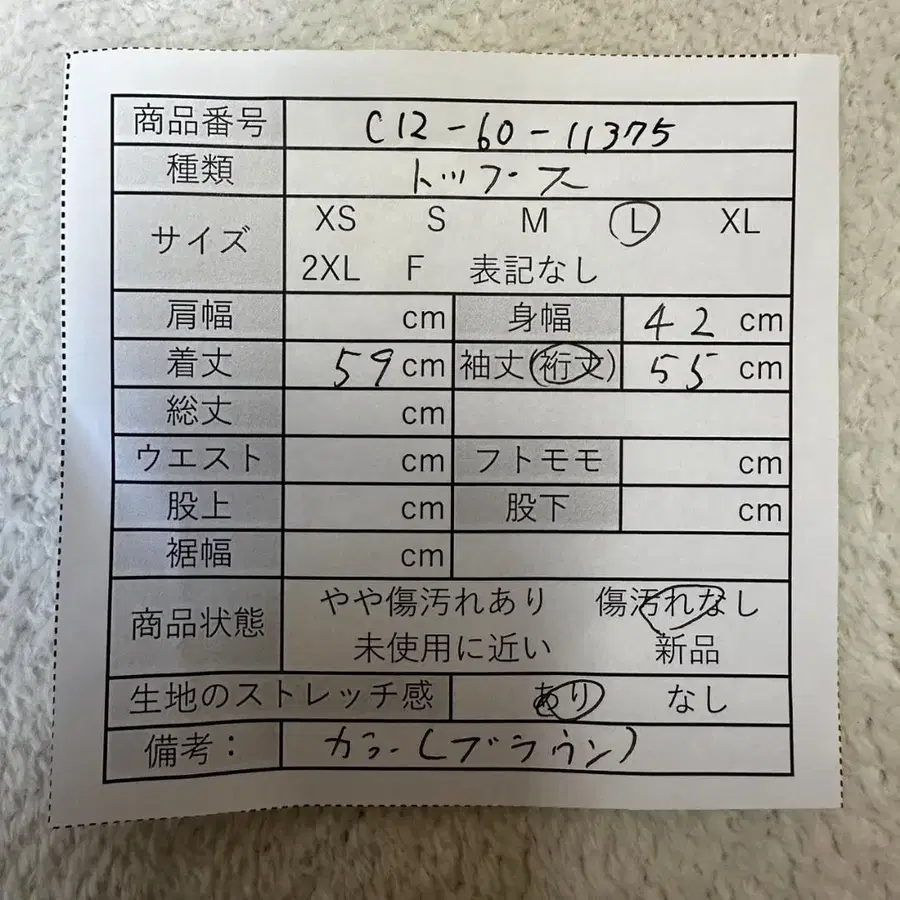 商品番号 C12-60-11375
種類 トップス
サイズ XS S M L XL
2XL F 表記なし
肩幅 cm 身幅 42 cm
着丈 59 cm 袖丈(裄丈) 55 cm
総丈 cm
ウエスト cm フトモモ cm
股上 cm 股下 cm
裾幅 cm
商品状態 やや傷汚れあり 傷汚れなし
未使用に近い 新品
生地のストレッチ感 あり なし
備考： カラー(ブラウン)